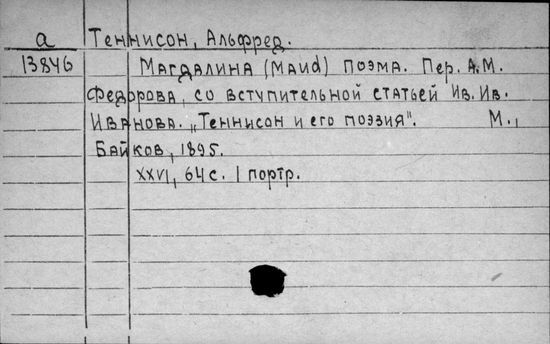 а Теннисон, Альфред.
13846 Магдалина (Maud) поэма. Пер. А.М.
Федорова, со вступительной статьей Ив. Ив.
Иванова. „Теннисон и его поэзия". М.,
Байков, 1895.
XXVI, 64 с. 1 портр.